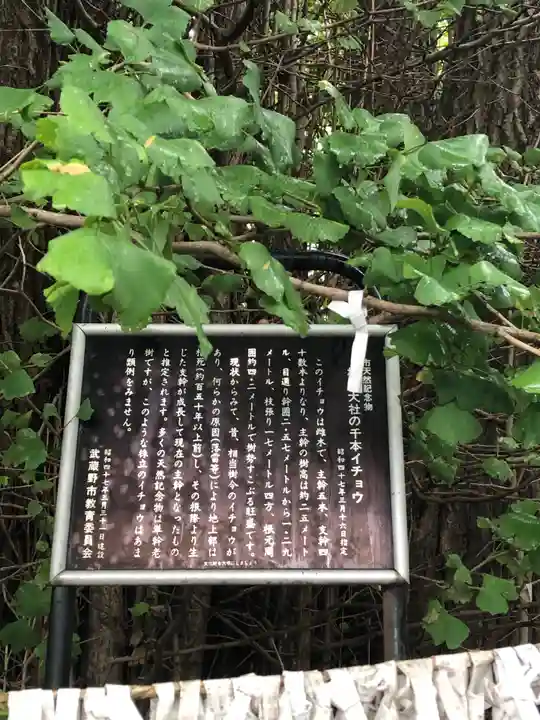 市天然記念物
天社の千本イチョウ
昭和四十七年三月十六日指定
このイチョウは雌木で、主幹五本、支幹四
十数本よりなり、主幹の樹高は約二五メート
ル、目通り幹囲二・五七メートルから一・二九
メートル、枝張り一七メートル四方、根元周
囲約四・二メートルで樹勢すこぶる旺盛です。
現状からみて、昔、相当樹令のイチョウが
あり、何らかの原因(落雷等)により地上部は
枯死(約百五十年以上前)し、その根際より生
じた支幹が成長して現在の主幹となったもの
と推定されます。多くの天然記念物は単幹老
樹ですが、このような株立のイチョウはあま
り類例をみません。
昭和四十七年三月三十一日建設
武蔵野市教育委員会
文化財を大切にしましょう